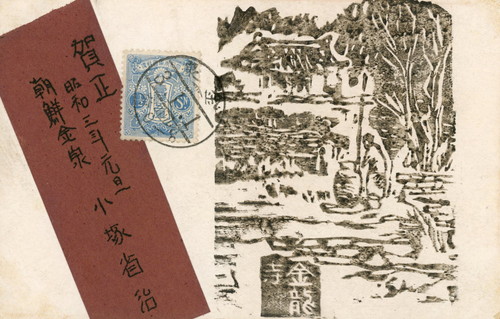 賀正
昭和三年元旦
朝鮮金泉
小塚省治
金龍寺